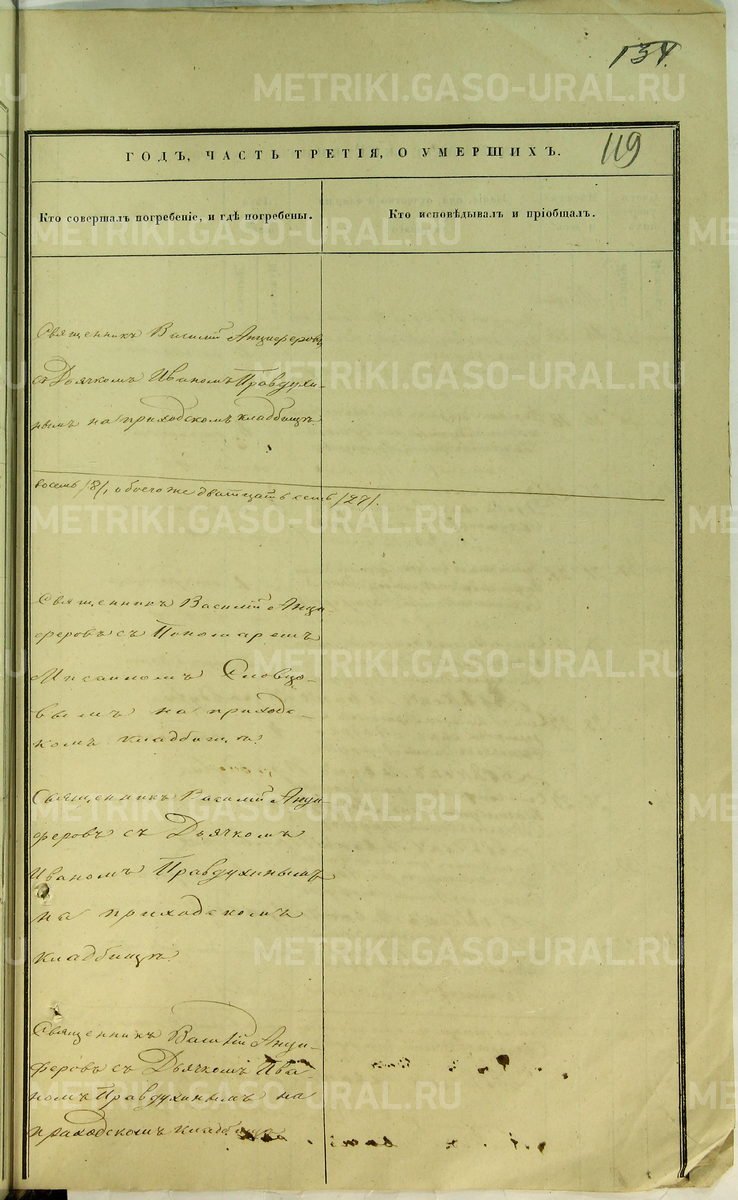 134.
119
ГОДЪ, ЧАСТЬ ТРЕТІЯ, О УМЕРШИХЪ.
Кто совершалъ погребеніе, и гдѣ погребены.
Кто исповѣдывалъ и пріобщалъ.
Священникъ Василій Анциферовъ
съ Дьячкомъ Иваномъ Правдухи-
нымъ на приходскомъ кладбищѣ
восемь /8/, обоего же двадцать семь /27/.
Священникъ Василій Анци
феровъ съ Пономаремъ
Словцо-
вымъ на приход-
скомъ кладбищѣ.
Священникъ Василій Анци-
феровъ съ Дьячкомъ
Иваномъ Правдухинымъ
на приходскомъ
кладбищѣ.
Священникъ Василій Анци-
феровъ съ Дьячкомъ Ива-
номъ Правдухинымъ на
приходскомъ кладбищѣ
METRIKI.GASO-URAL.RU